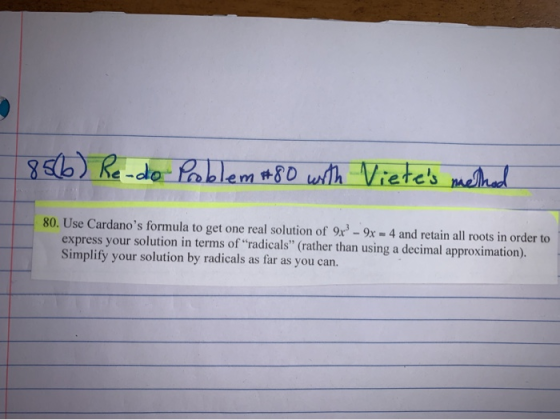 85(b) Re-do Problem #80 with Viete's method
80. Use Cardano's formula to get one real solution of 9x³ – 9x = 4 and retain all roots in order to
express your solution in terms of "radicals" (rather than using a decimal approximation).
Simplify your solution by radicals as far as you can.